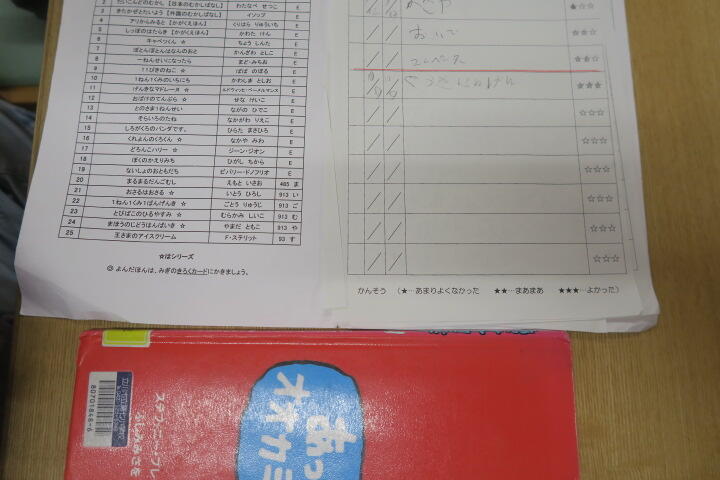 2 だいこんどのむかし 【日本のむかしばなし】 わたなべ せつこ E
3 きたかぜとたいよう 【外国のむかしばなし】 イソップ E
4 アリからみると 【かがくえほん】 くりばら りゅういち E
5 しっぽのはたらき 【かがくえほん】 かわた けん E
6 キャベツくん ☆ ちょう しんた E
7 ぽとんぽとんはなんのおと かんざわ としこ E
8 一ねんせいになったら まど・みちお E
9 11ぴきのねこ ☆ ばば のぼる E
10 1ねん1くみのいちにち かわしま としお E
11 げんきなマドレーヌ ☆ ルドウィッヒ・ベーメルマンス E
12 おばけのてんぷら ☆ せな けいこ E
13 とのさま1ねんせい ながの ひでこ E
14 そらいろのたね なかがわ りえこ E
15 しろがくろのパンダです。 ひらた まさひろ E
16 くれよんのくろくん ☆ なかや みわ E
17 どろんこハリー ☆ ジーン・ジオン E
18 ぼくのかえりみち ひがし ちから E
19 ないしょのおともだち ビバリー・ドノフリオ E
20 まるまるだんごむし えもと いさお 485 ま
21 おさるはおさる ☆ いとう ひろし 913 い
22 1ねん1くみ1ばんげんき ☆ ごとう りゅうじ 913 ご
23 とびばこのひるやすみ ☆ むらかみ しいこ 913 む
24 まほうのじどうはんばいき ☆ やまだ ともこ 913 や
25 王さまのアイスクリーム F・ステリット 93 す
☆はシリーズ
◎ よんだほんは、みぎのきろくカードにかきましょう。
★☆☆
おいで ☆☆☆
★★☆
★★★
☆☆☆
☆☆☆
☆☆☆
☆☆☆
かんそう (★…あまりよくなかった ★★…まあまあ ★★★…よかった)
80701848-6
あっ
オオカミ
ステファニー・ブレ